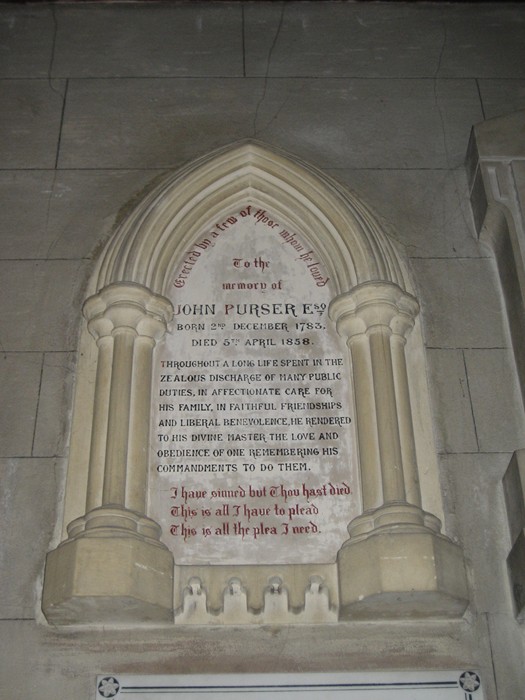 Erected by a few of those whom he loved
To the
memory of
JOHN PURSER ESQ
BORN 2ND DECEMBER 1783.
DIED 5TH APRIL 1858.
THROUGHOUT A LONG LIFE SPENT IN THE
ZEALOUS DISCHARGE OF MANY PUBLIC
DUTIES, IN AFFECTIONATE CARE FOR
HIS FAMILY, IN FAITHFUL FRIENDSHIPS
AND LIBERAL BENEVOLENCE, HE RENDERED
TO HIS DIVINE MASTER THE LOVE AND
OBEDIENCE OF ONE REMEMBERING HIS
COMMANDMENTS TO DO THEM.
I have sinned but Thou hast died
This is all I have to plead
This is all the plea I need.